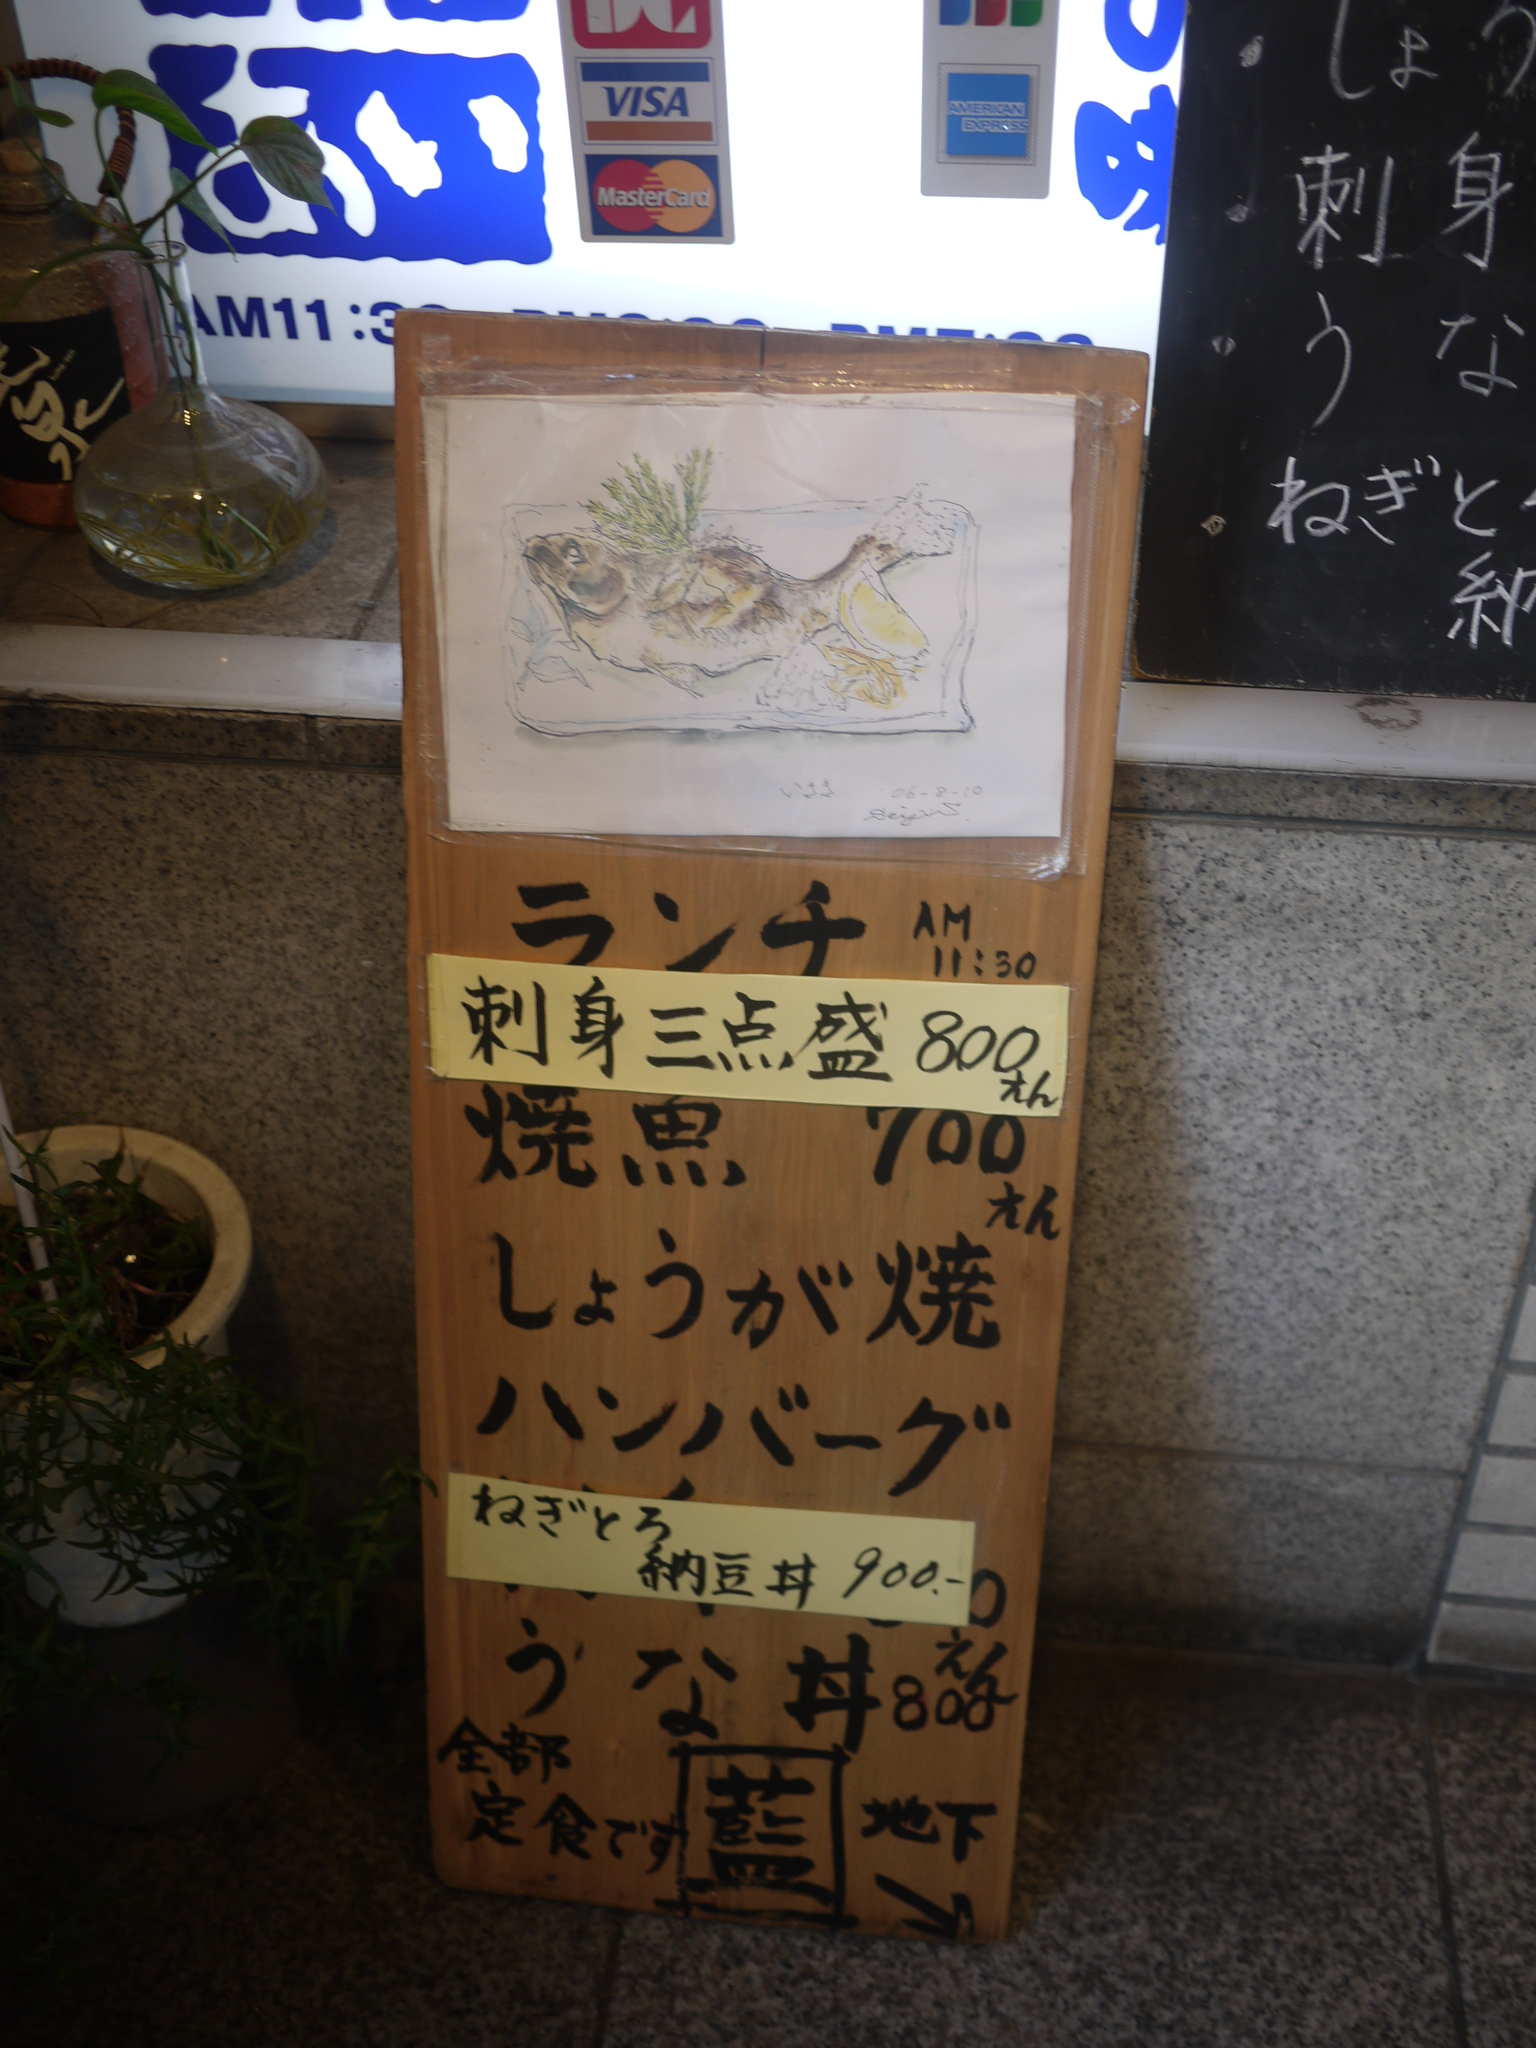 VISA
MasterCard
AMERICAN
EXPRESS
味
AM11:30
しょう
刺身
うな
ねぎと
納
06-8-10
ランチ AM
11:30
刺身三点盛 800
えん
焼魚 700
えん
しょうが焼
ハンバーグ
ねぎとろ
納豆丼 900.-
えん
うな丼 800
全部
定食です
藍
地下